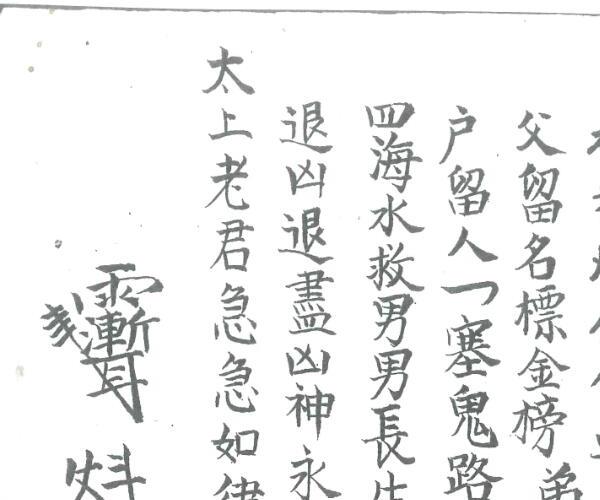 父留名標金榜弟
户留人乛塞鬼路
四海水救男男長生
退凶退盡凶神永
太上老君急急如律